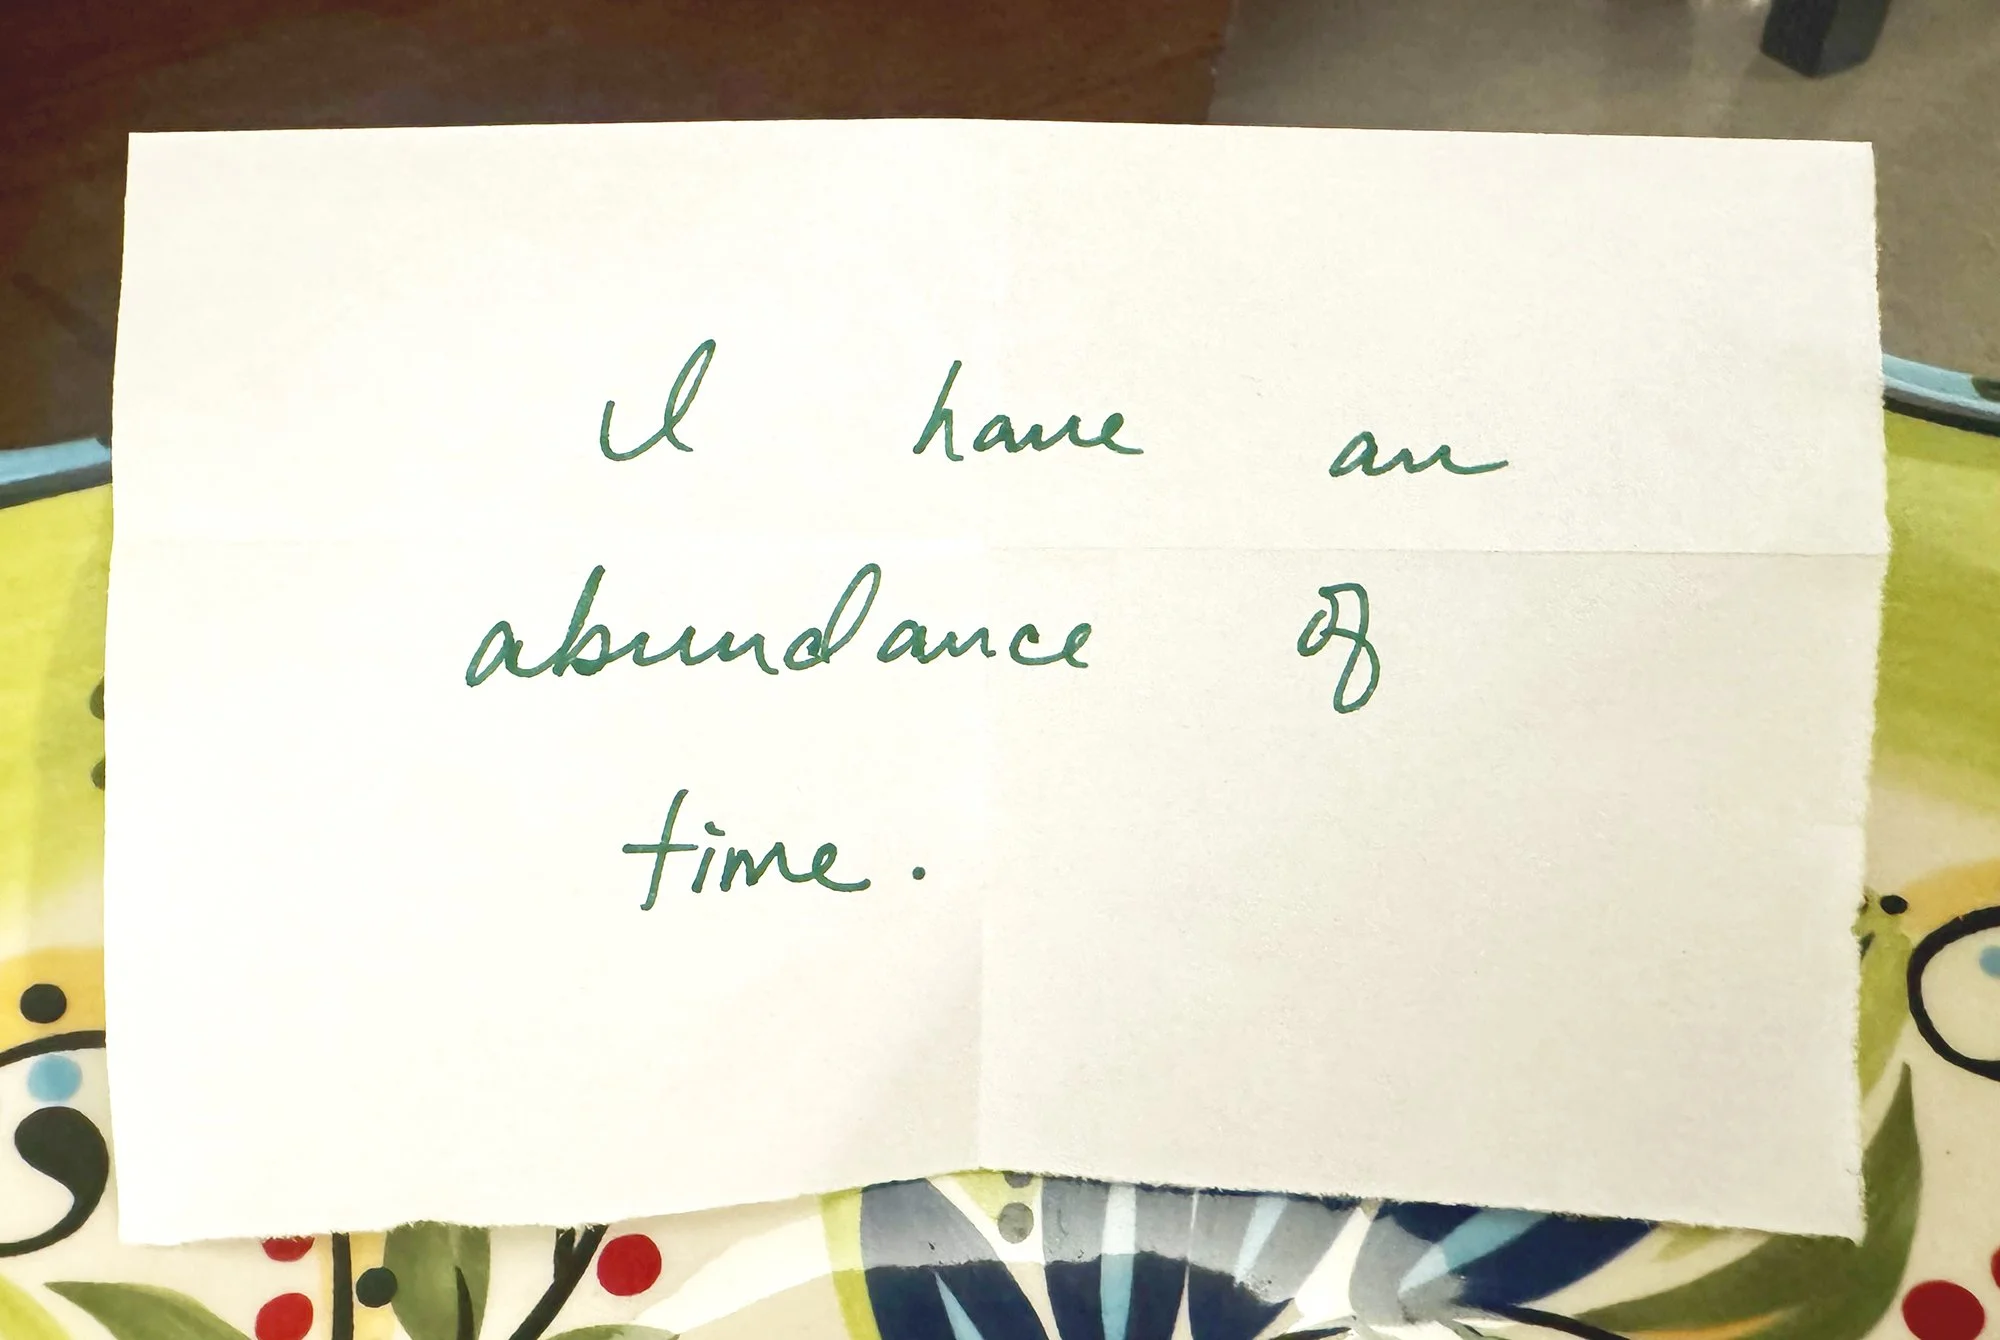 I have an
abundance of
time.